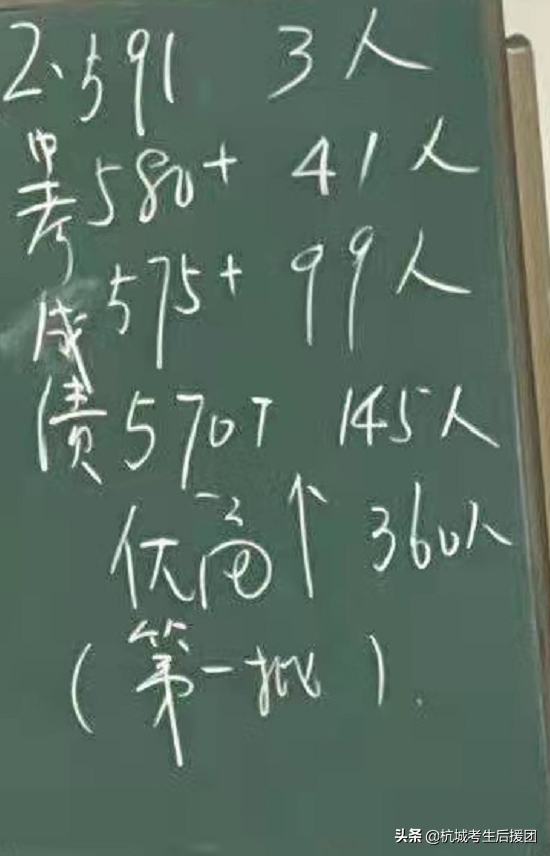 2、591 3人
中考成绩
580+ 41人
575+ 99人
570+ 145人
优高↑ 360人
(第一批).
头条 @杭城考生后援团